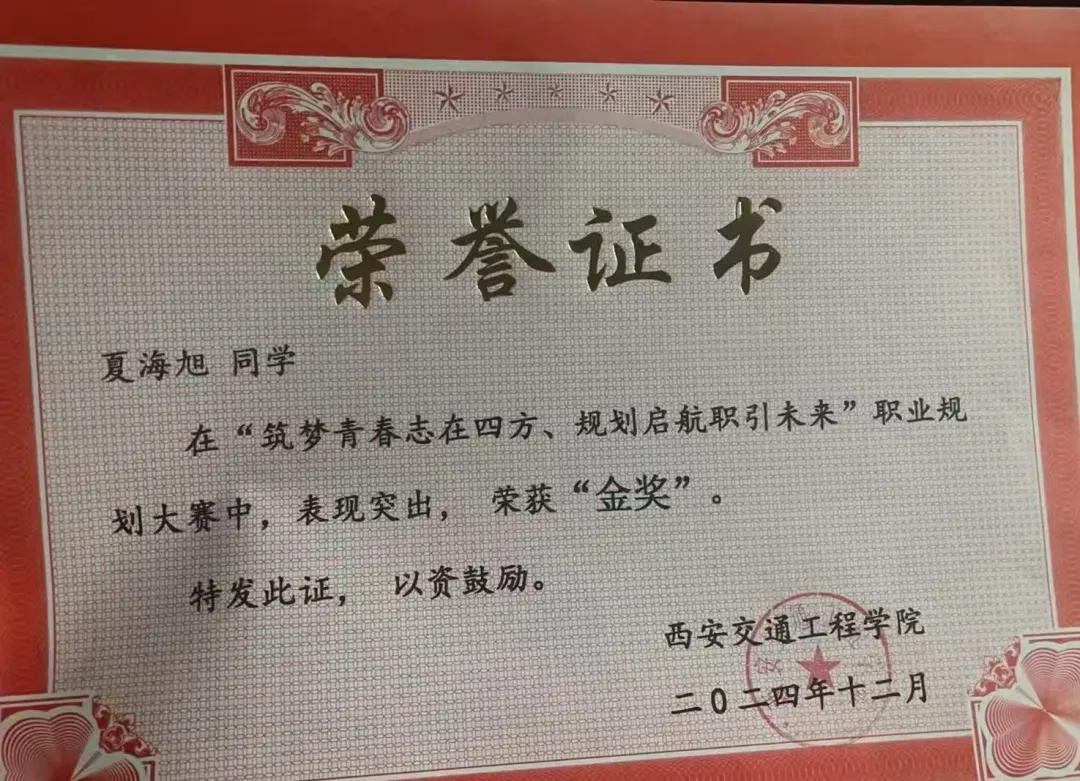 荣誉证书
夏海旭 同学
在“筑梦青春志在四方、规划启航职引未来”职业规
划大赛中，表现突出， 荣获“金奖”。
特发此证， 以资鼓励。
西安交通工程学院
二〇二四年十二月